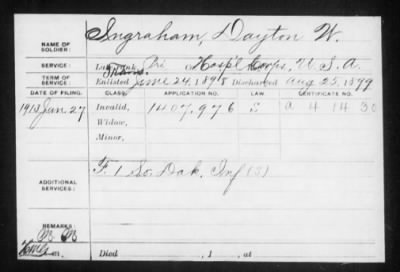 NAME OF SOLDIER: Ingraham, Dayton W.
SERVICE: Late rank, Pri Hospl Corps, U.S.A.
TERM OF SERVICE: Enlisted June 24, 1898 Discharged Aug 25, 1899
DATE OF FILING. CLASS. APPLICATION NO. LAW. CERTIFICATE NO.
1913 Jan. 27 Invalid, 1407.976
Widow,
Minor,
ADDITIONAL SERVICES: F. 1 So. Dak. Inf (S)
REMARKS:
Died , 1 , at